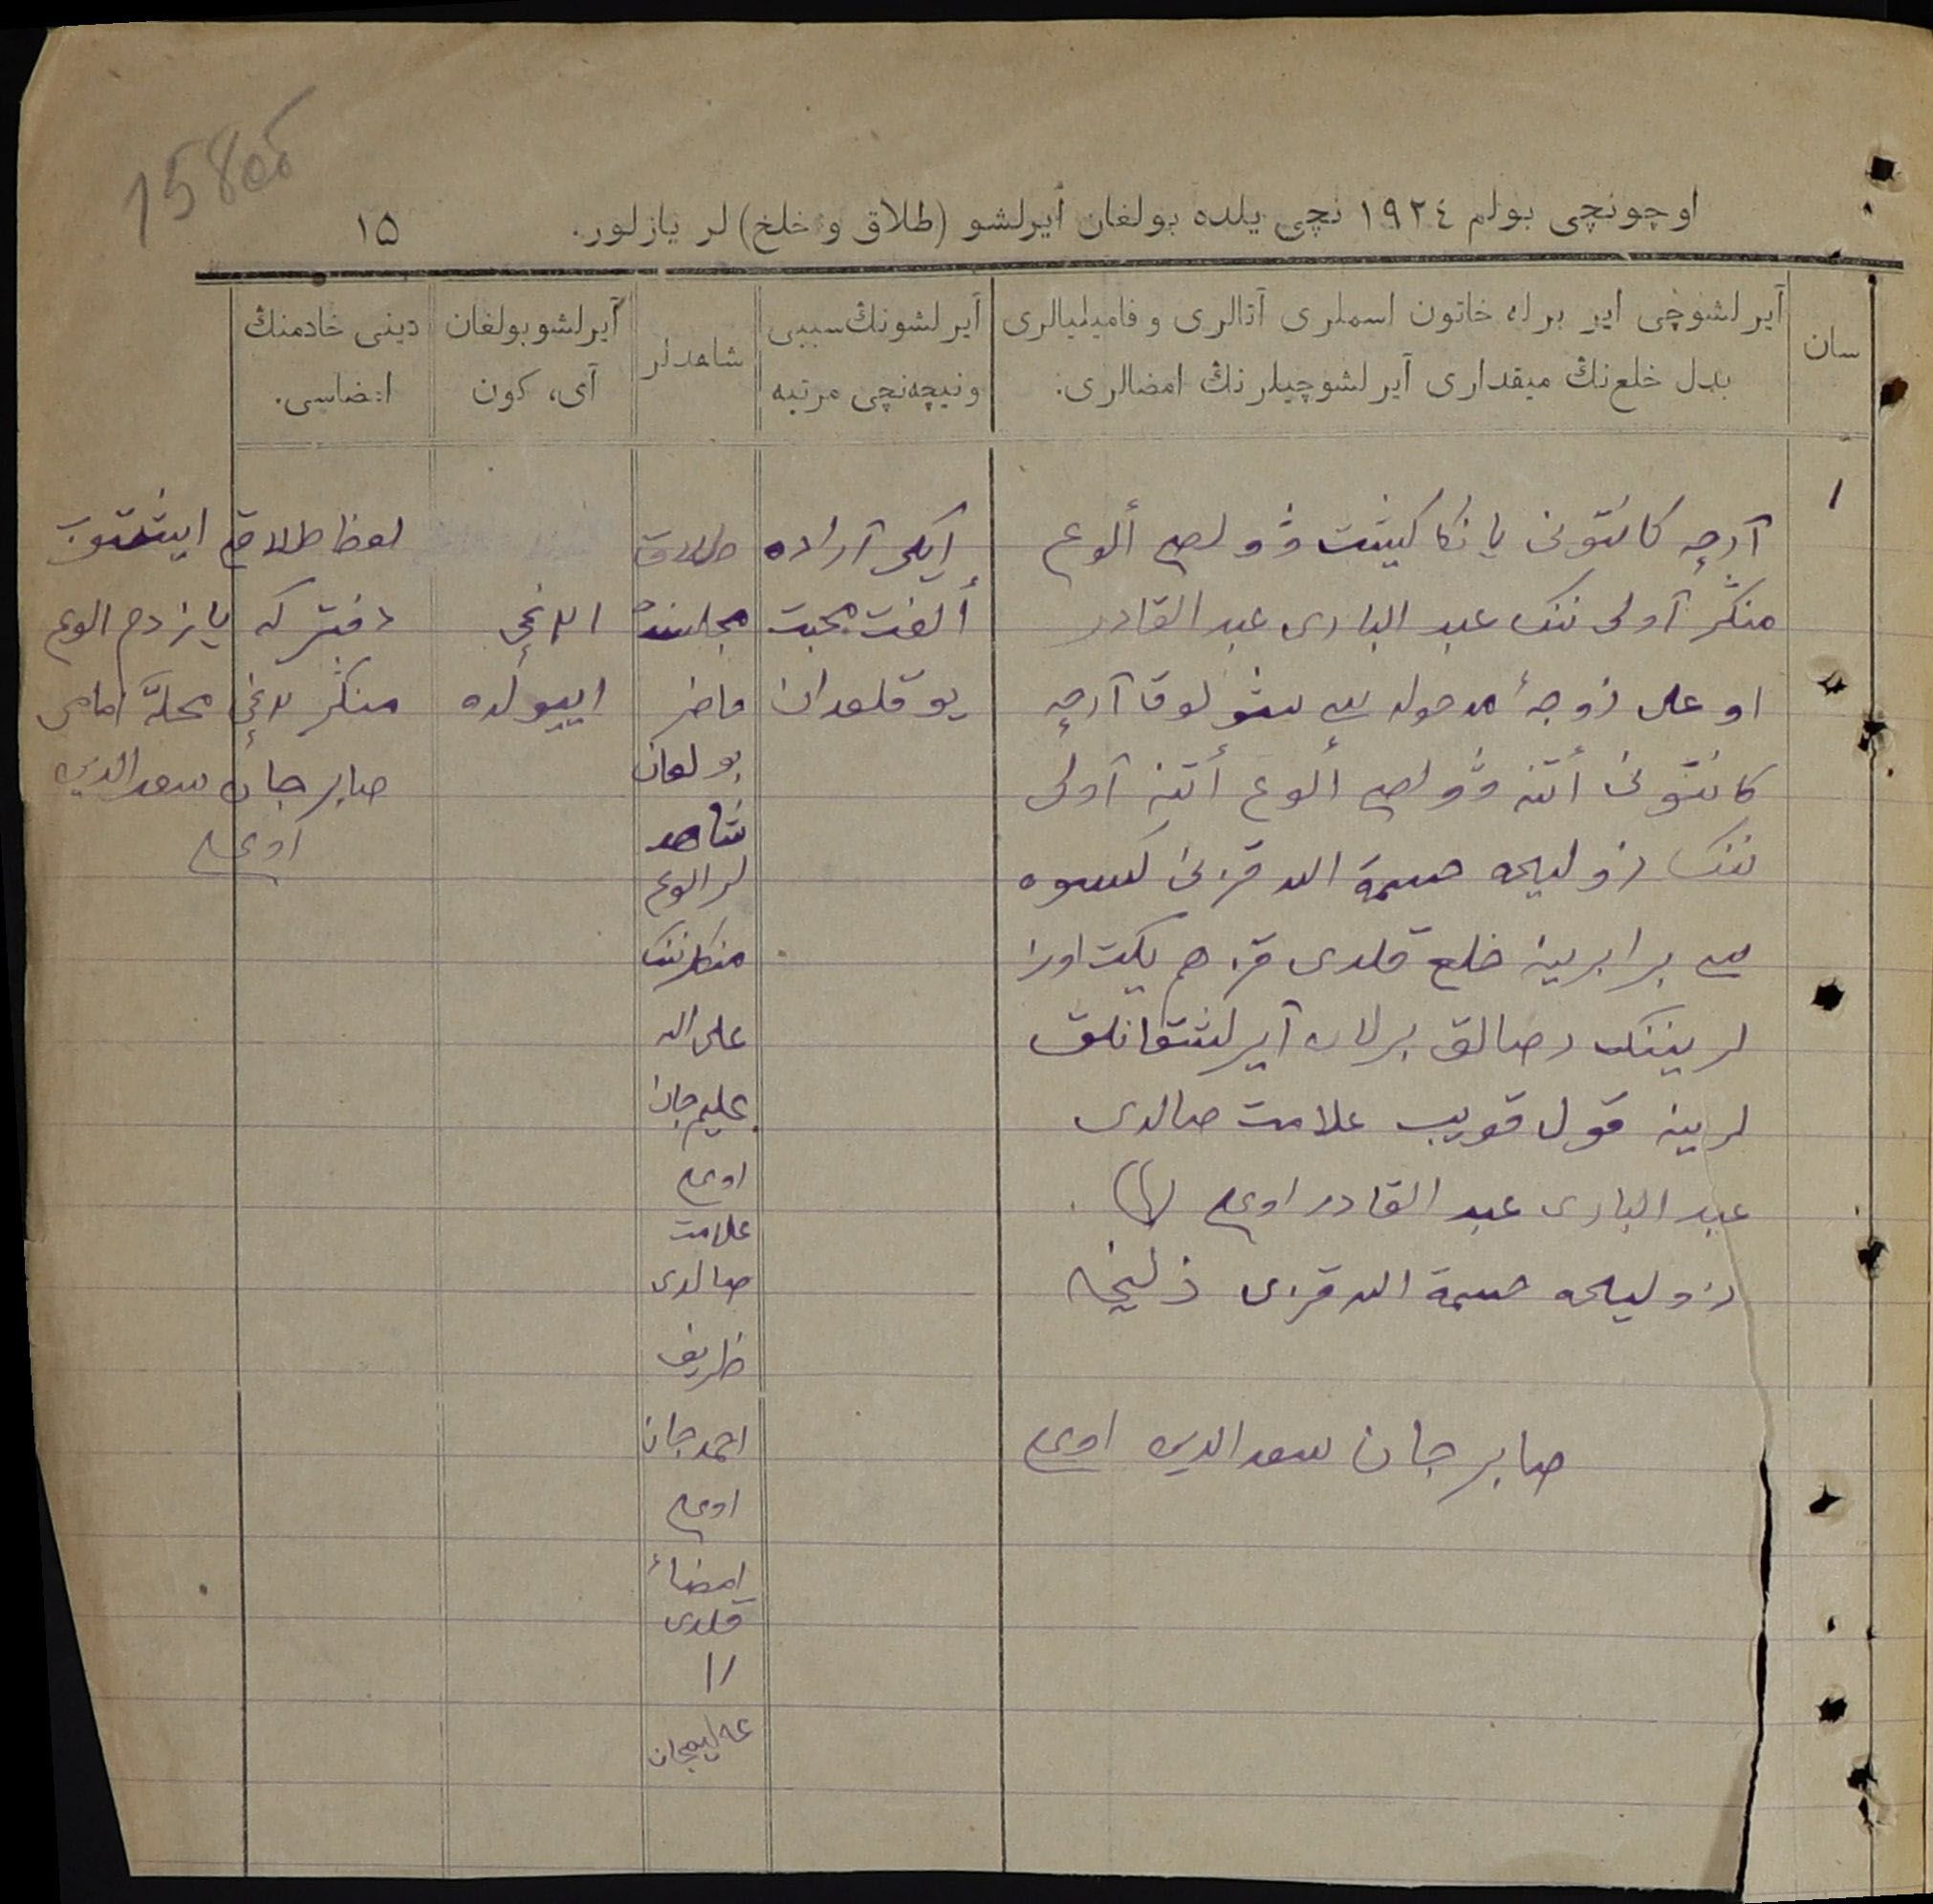 158об
اوچونچی بولم ١٩٢٤ نچی یلده بولغان آیرلشو (طلاق و خلخ) لر یازلور.
١٥
سان
آیرلشوچی ایر برله خاتون اسملری آتالری و فامیلیالری
بدل خلع نڭ میقداری آیرلشوچیلر نڭ امضالری.
آیرلشونڭ سببی
و نیچه نچی مرتبه
شاهدلر
آیرلشو بولغان
آی، کون
دینی خادمنڭ
امضاسی.
١
آرچه کانتونی یانکا کیشت ألوغ
منگر آولی ننک عبد البادی عبد القادر
اوغلی زوجهٔ مدخوله آرچه
کانتونی أتنه ألوغ أتنه آولی
ننک زولیحه قزنی کسوه
سی برابرینه خلع قلدی هم
لریننک رضالق برلان آیرلشقانلق
لرینه قول قویب علامت صالدی
عبد البادی عبد القادر اوغلی
زولیحه قزی ذلیخه
صابر جان سعد الدین اوغلی
ایکی آراده
ألفت محبت
یوقلعدان
طلاق
مجلسنده
حاضر
بولغان
شاهد
لر الوغ
منگر ننک
علیم جان
اوغلی
علامت
صالدی
ظریف
احمد جان
اوغلی
امضاء
قلدی
عه لیمجان
اییولده
لفظ طلاق ایشتوب
دفتر که یازدم الوغ
منگر محله امامی
صابر جان سعد الدین
اوغلی